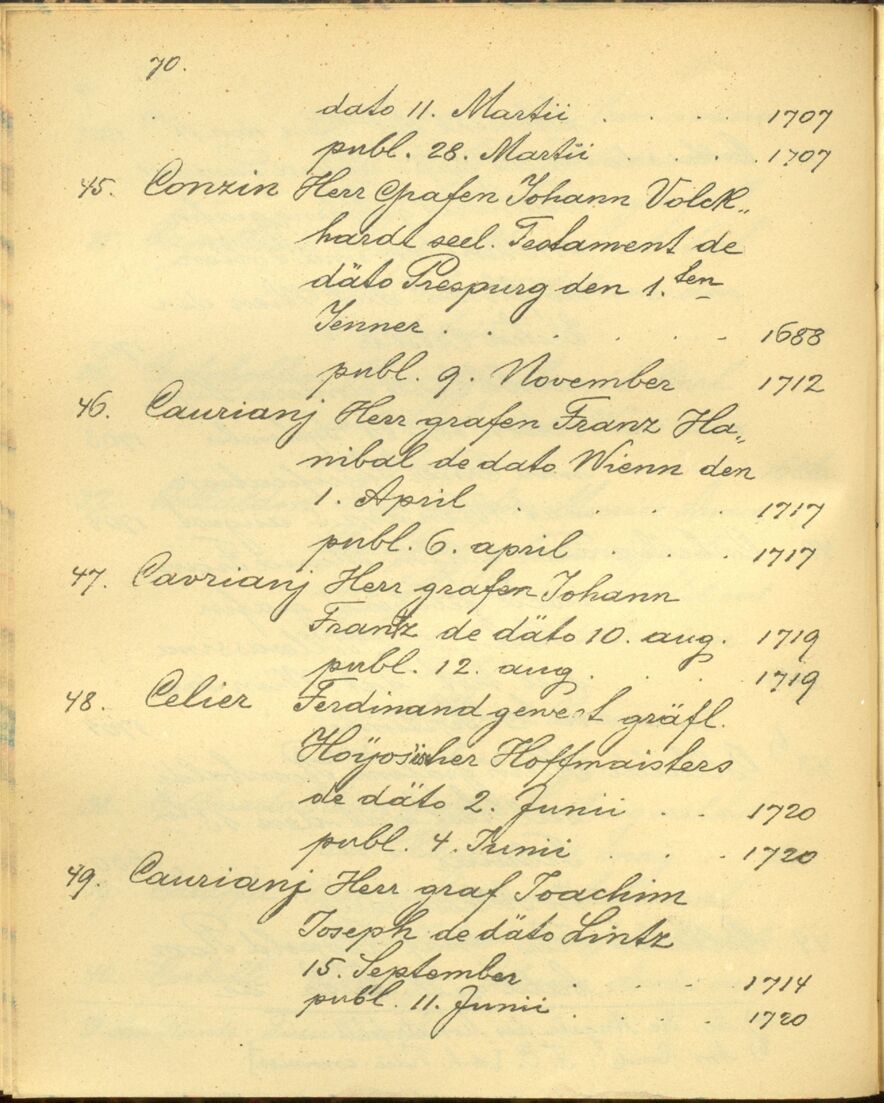 70.
dato 11. Martii . . . 1707
publ. 28. Martii . . . 1707
45. Conzin Herr Grafen Johann Volck„
hardt seel. Testament de
däto Prespurg den 1.ten
Jenner . . . . . . 1688
publ. 9. November 1712
46. Caurianj Herr grafen Franz Ha„
nibal de dato Wienn den
1. April . . . . 1717
publ. 6. april . . . 1717
47. Cavrianj Herr grafen Johann
Frantz de däto 10. aug. 1719
publ. 12. aug . . . 1719
48. Celier Ferdinand gewest gräfl.
Hoÿosischer Hoffmaisters
de däto 2. Junii . . . 1720
publ. 4. Junii . . . 1720
49. Caurianj Herr graf Joachim
Joseph de däto Lintz
15. September . . . . 1714
publ. 11. Junii . . . . 1720